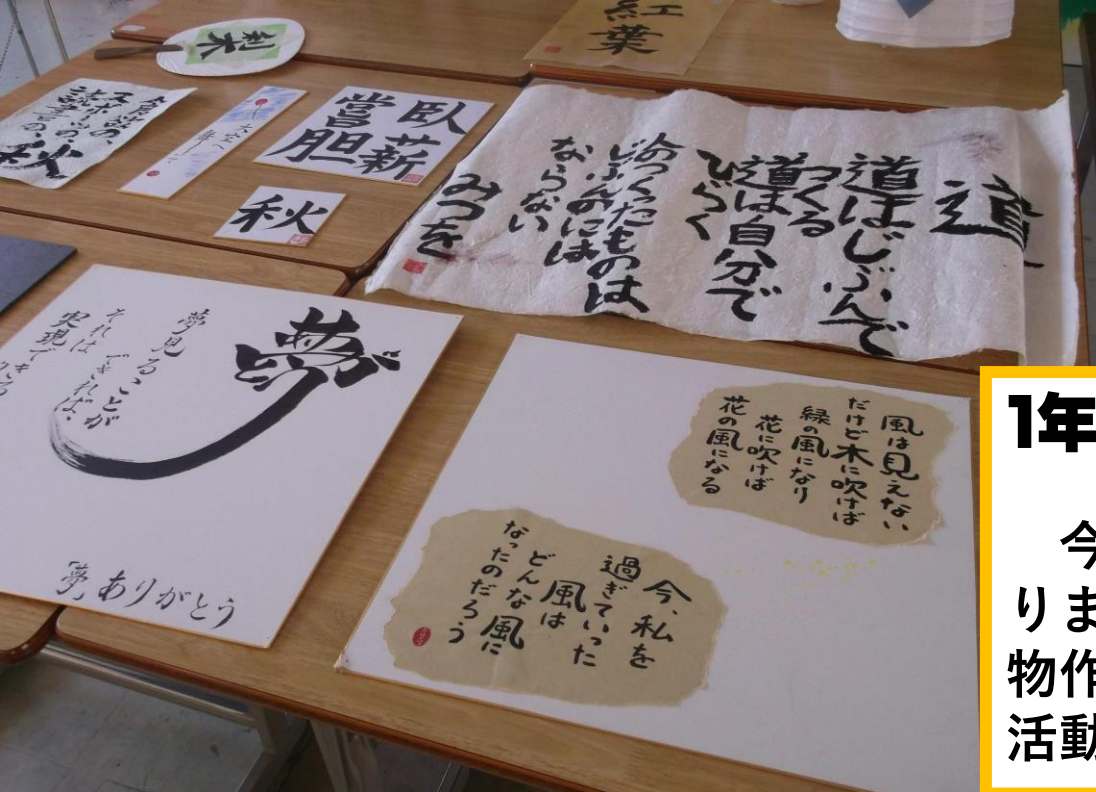 紅葉
食欲の、
スポーツの、
読書の、
秋
大空へ
臥薪
嘗胆
秋
道
道はじぶんで
つくる
道は自分で
ひらく
人のつくったものは
じぶんのには
ならない
みつを
夢
夢見ることが
できれば、
それは
実現でき
「夢」ありがとう
風は見えない
だけど木に吹けば
緑の風になり
花に吹けば
花の風になる
今、私を
過ぎていった
風は
どんな風に
なったのだろう
1年
今
りま
物作
活動